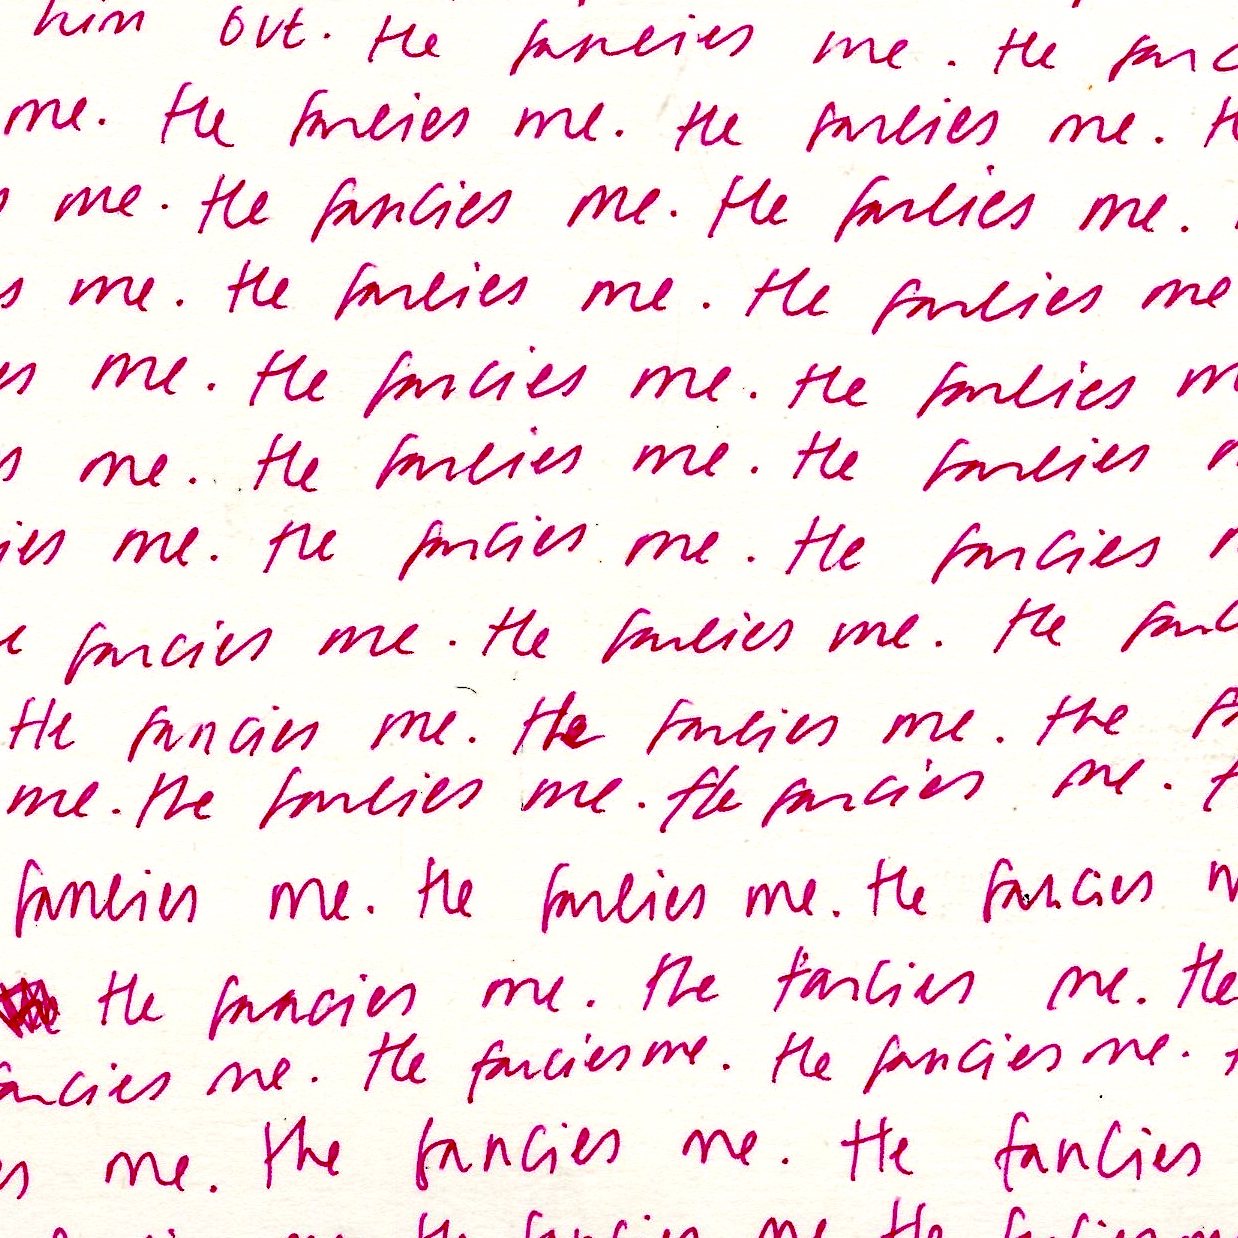 him out. He fancies me. He fanc
me. He fancies me. He fancies me. H
s me. He fancies me. He fancies me.
s me. He fancies me. He fancies me
es me. He fancies me. He fancies m
s me. He fancies me. He fancies m
ies me. He fancies me. He fancies m
e fancies me. He fancies me. He fanc
He fancies me. He fancies me. He fa
me. He fancies me. He fancies me. H
fancies me. He fancies me. He fancies m
He fancies me. He fancies me. He
ancies me. He fancies me. He fancies me. H
es me. He fancies me. He fancies
fancies me He fancies me He fancies me